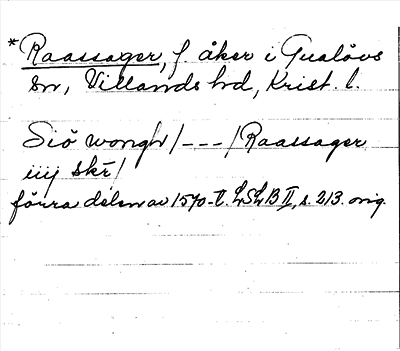 *Raassager, f. åker i Gualövs
sn, Villands hd, Krist. l.
Siö wongh/---/Raassager
iiij skr/
förra delen av 1570-t. LSLB II, s. 213. orig.